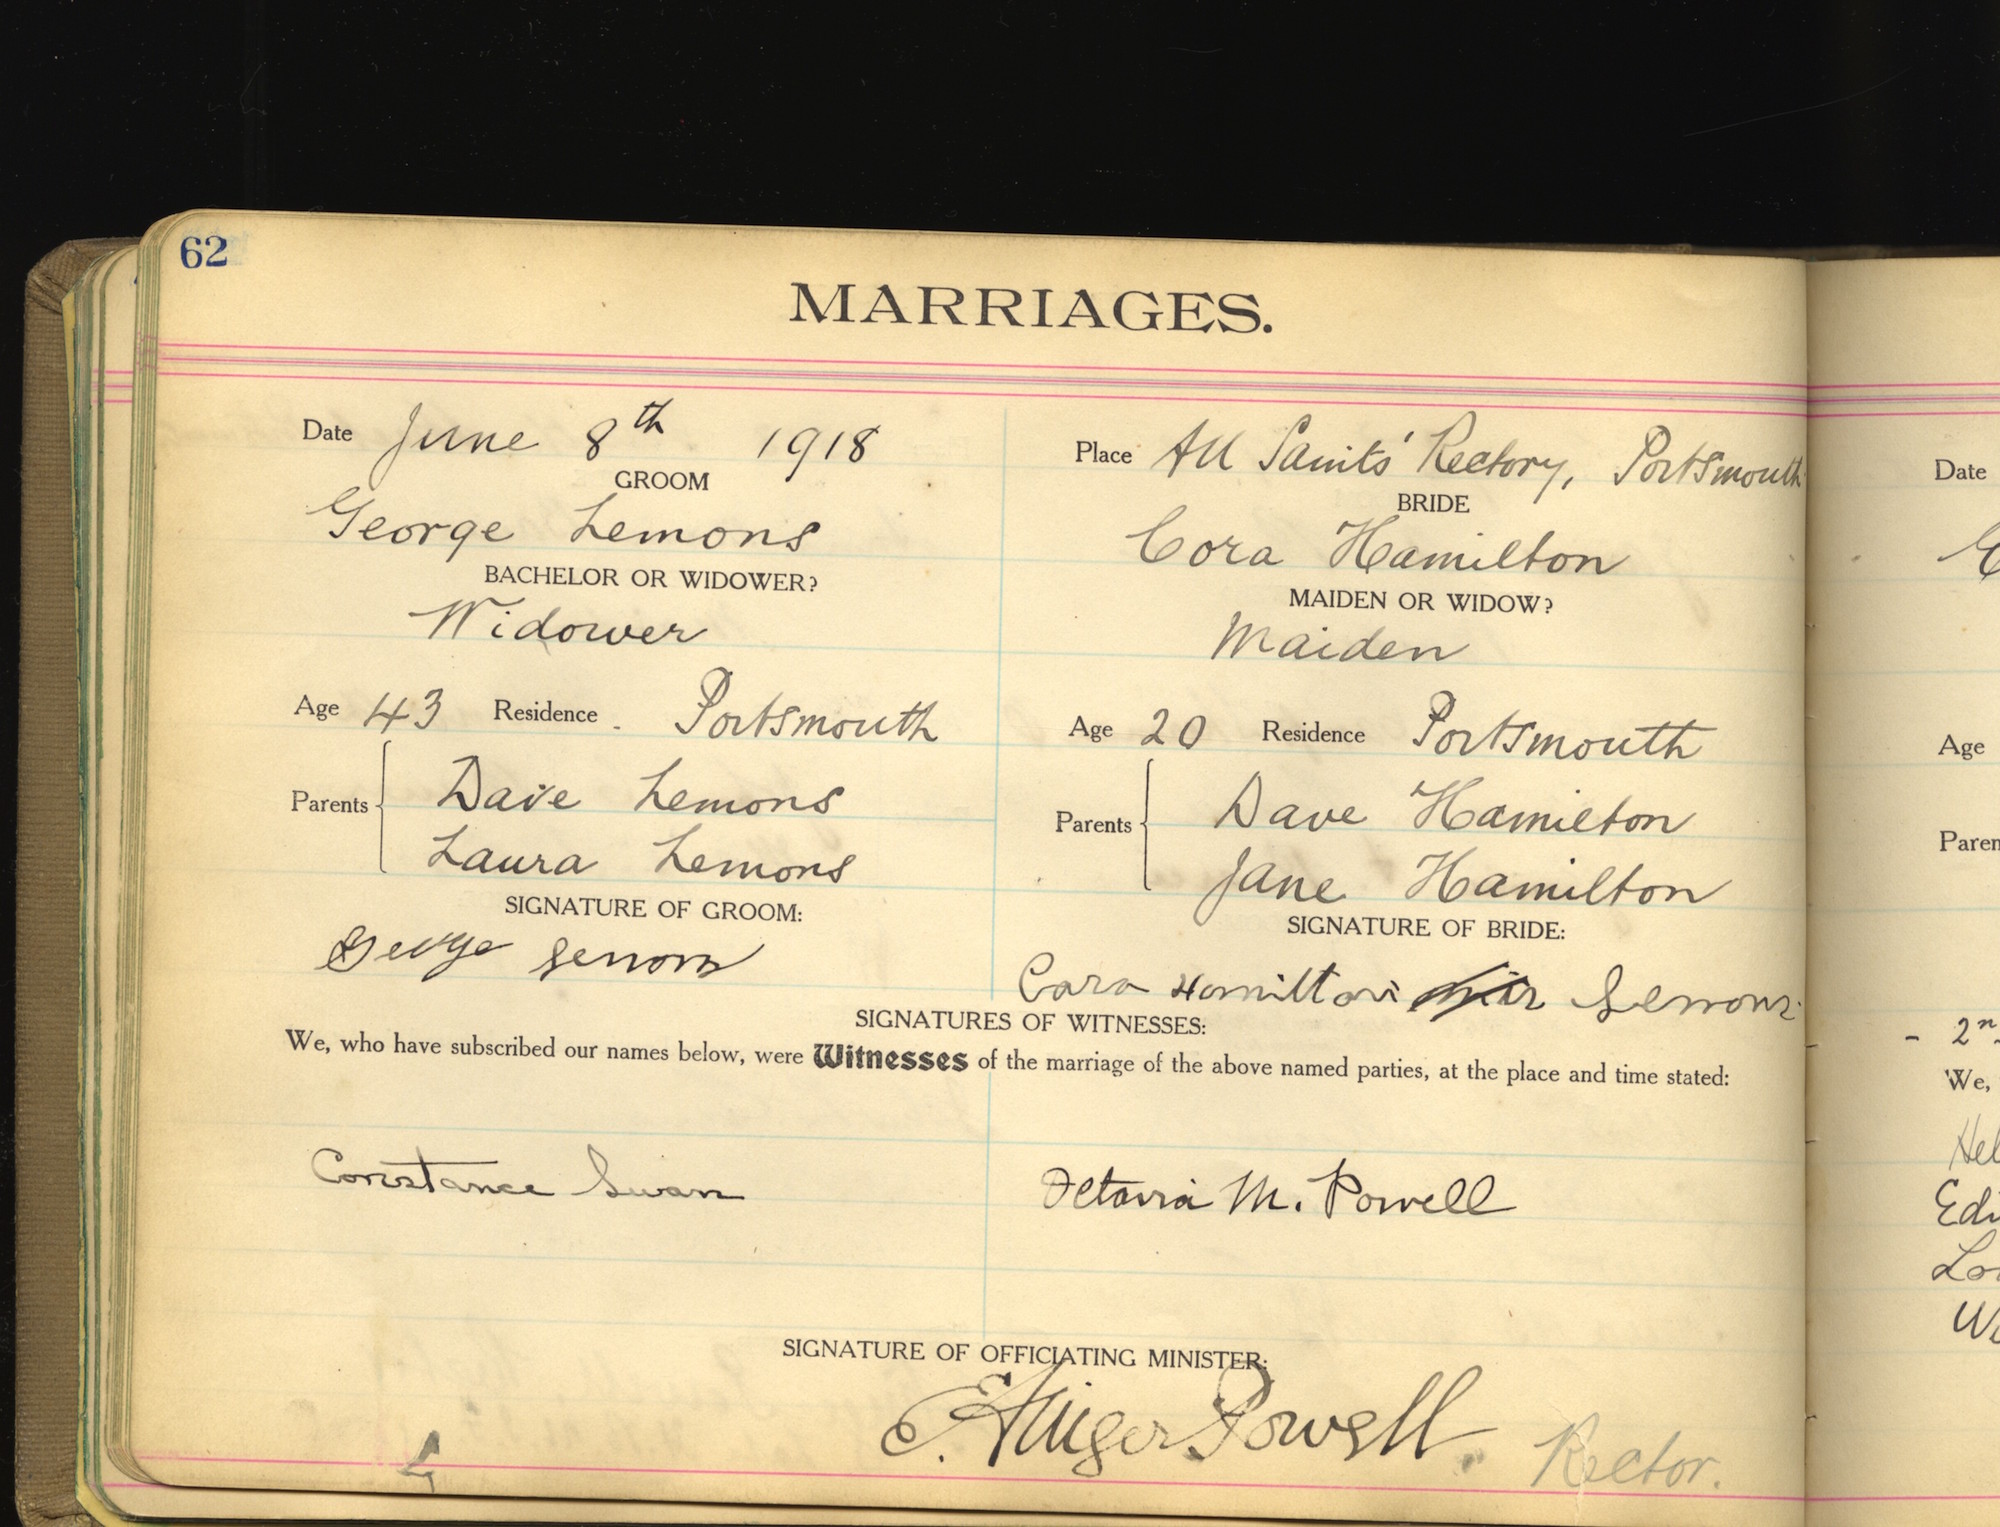 62
MARRIAGES.
Date June 8th 1918
GROOM
George Lemons
BACHELOR OR WIDOWER?
Widower
Age 43 Residence Portsmouth
Parents Dave Lemons
Laura Lemons
SIGNATURE OF GROOM:
George Lemons
Place All Saints' Rectory, Portsmouth
BRIDE
Cora Hamilton
MAIDEN OR WIDOW?
Maiden
Age 20 Residence Portsmouth
Parents Dave Hamilton
Jane Hamilton
SIGNATURE OF BRIDE:
Cora Hamilton Lemons
SIGNATURES OF WITNESSES:
We, who have subscribed our names below, were Witnesses of the marriage of the above named parties, at the place and time stated:
Constance Swan
Octavia M. Powell
SIGNATURE OF OFFICIATING MINISTER:
Powell. Rector.
Date
Age
Paren
- 2n
We,
Hel
Edi